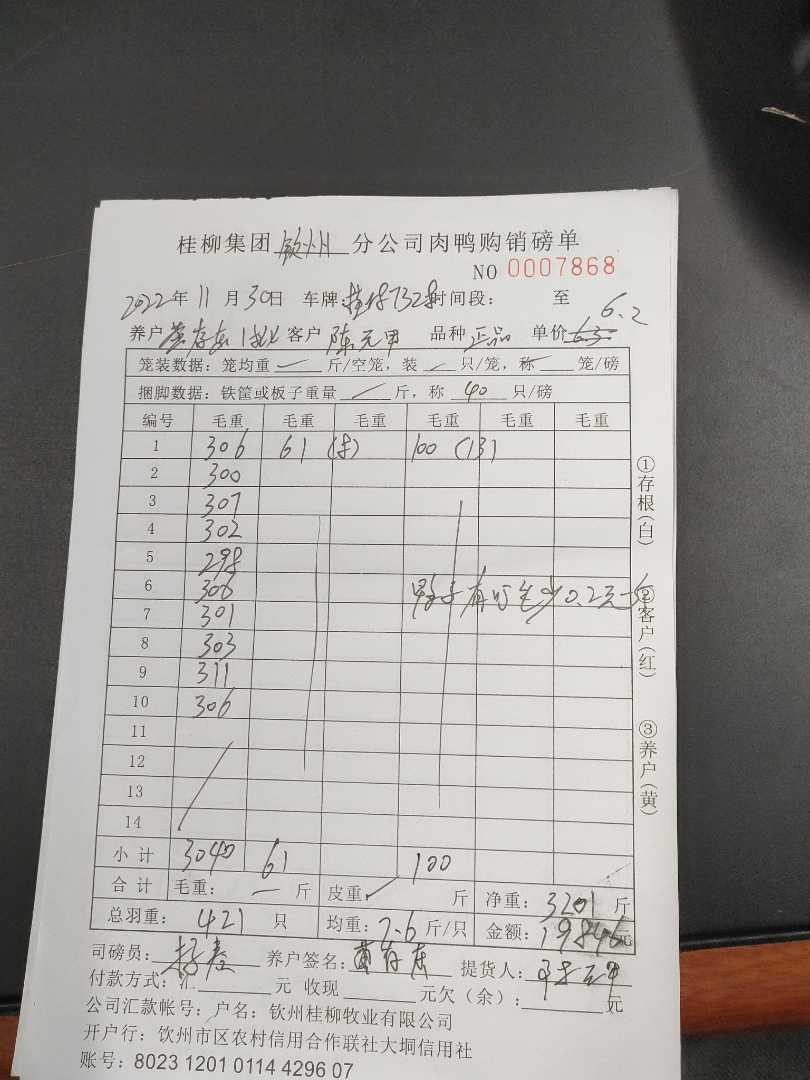 桂柳集团 钦州 分公司肉鸭购销磅单
NO 0007868
2022年 11月30日 车牌: 时间段: 至
6.2
养户 客户 陈元甲 品种 正品 单价 6.3
笼装数据: 笼均重 斤/空笼, 装 只/笼, 称 笼/磅
捆脚数据: 铁筐或板子重量 斤, 称 40 只/磅
编号 毛重 毛重 毛重 毛重 毛重 毛重
1 306 61 (8) 100 (13)
2 300
3 307
4 302
5 298
6 306 鸭子有 少0.2元
7 301
8 303
9 311
10 306
11
12
13
14
小计 3040 61 100
合计 毛重: 斤 皮重: 斤 净重: 3201 斤
总羽重: 421 只 均重: 7.6 斤/只 金额: 19846元
司磅员: 养户签名: 黄存 提货人:
付款方式: 汇 元 收现 元欠(余): 元
公司汇款帐号: 户名: 钦州桂柳牧业有限公司
开户行: 钦州市区农村信用合作联社大垌信用社
账号: 8023 1201 0114 4296 07
①存根(白)
②客户(红)
③养户(黄)